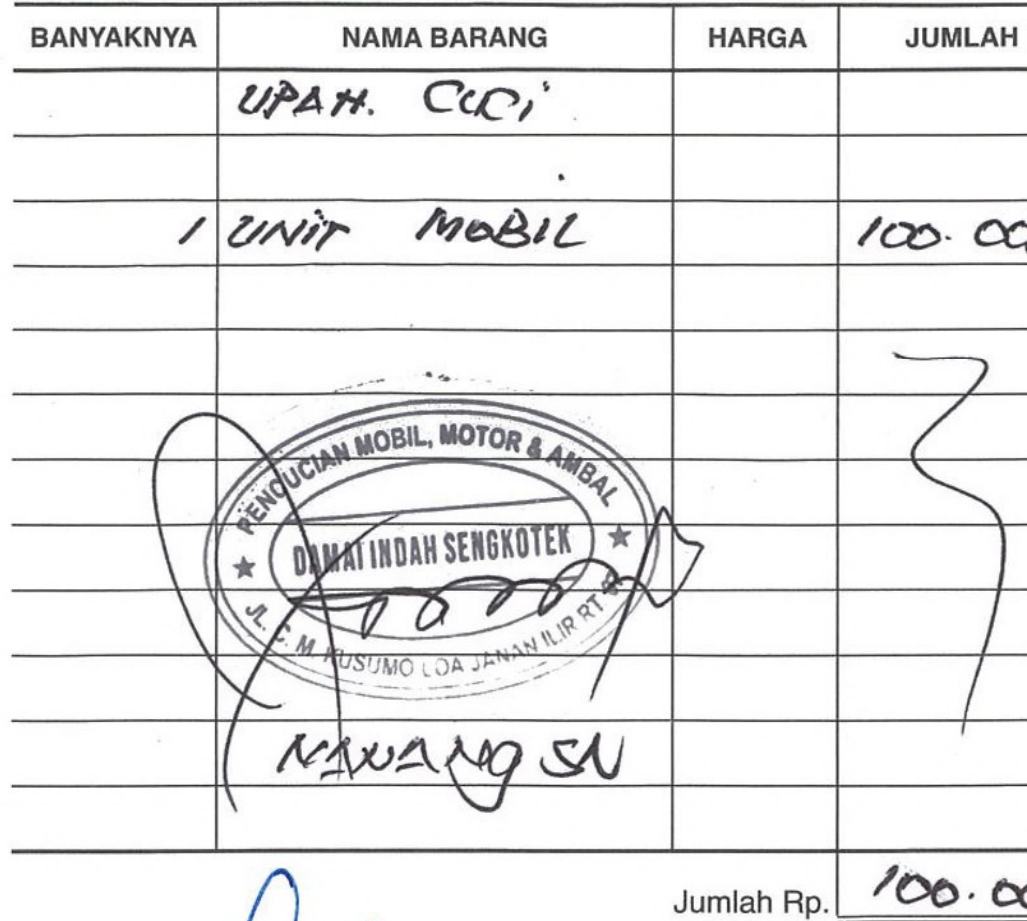 BANYAKNYA NAMA BARANG HARGA JUMLAH
UPAH. CUCI
1 UNIT MOBIL 100.00
PENCUCIAN MOBIL, MOTOR & AMBAL
DAMAI INDAH SENGKOTEK
JL. C. M. KUSUMO LOA JANAN ILIR RT
NAWANG SN
Jumlah Rp. 100.00